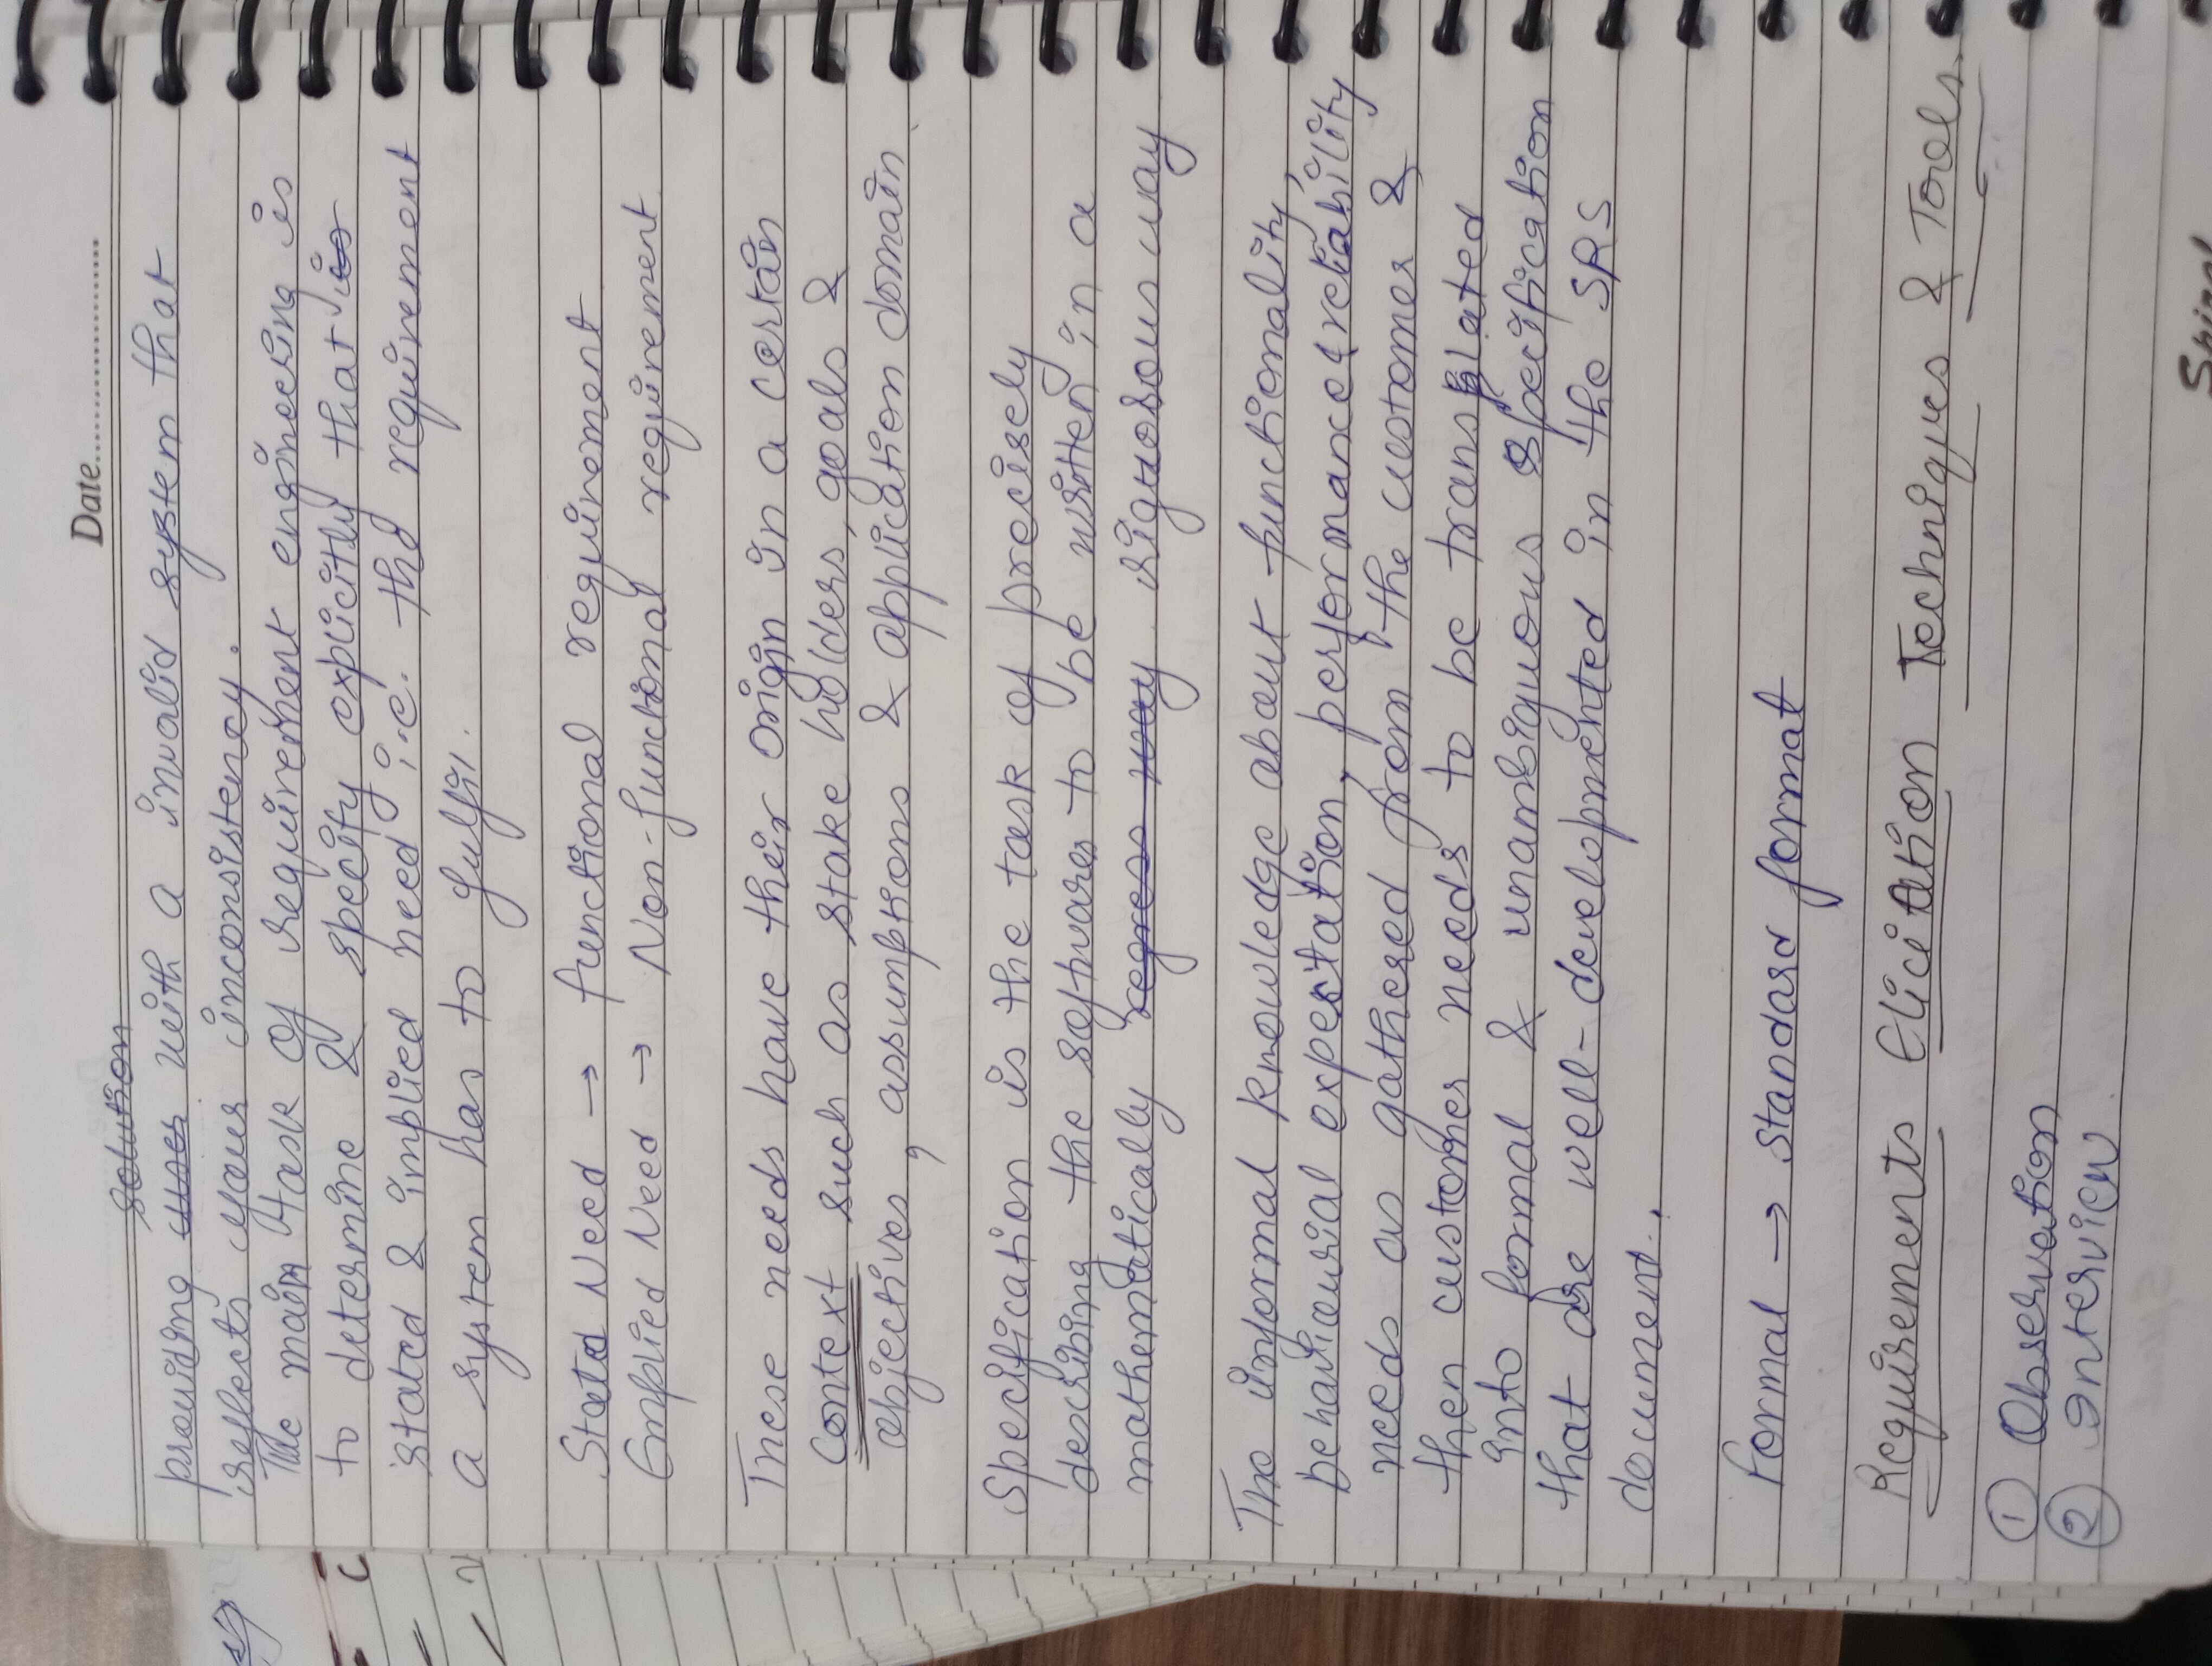 Date
solution
providing user with a invalid system that
reflects your inconsistency.
The main task of requirement engineering is
to determine & specify explicitly that is
stated & implied need i.e. the requirement
a system has to fulfil.
Stated Need → functional requirement
Emplied Need → Non-functional requirement
These needs have their origin in a certain
context such as stake holders, goals &
objectives, assumptions & application domain
Specification is the task of precisely
describing the software to be written in a
mathematically rigrorous way
The informal knowledge about functionality
behaviourial expectation, performance, reliability
needs as gathered from the customer &
then customer needs to be translated
into formal & unambiguous specification
that are well-developmented in the SRS
document.
formal → standard format
Requirements Elicitation Techniques & Tools.
① Observation
② Interview
Spiral